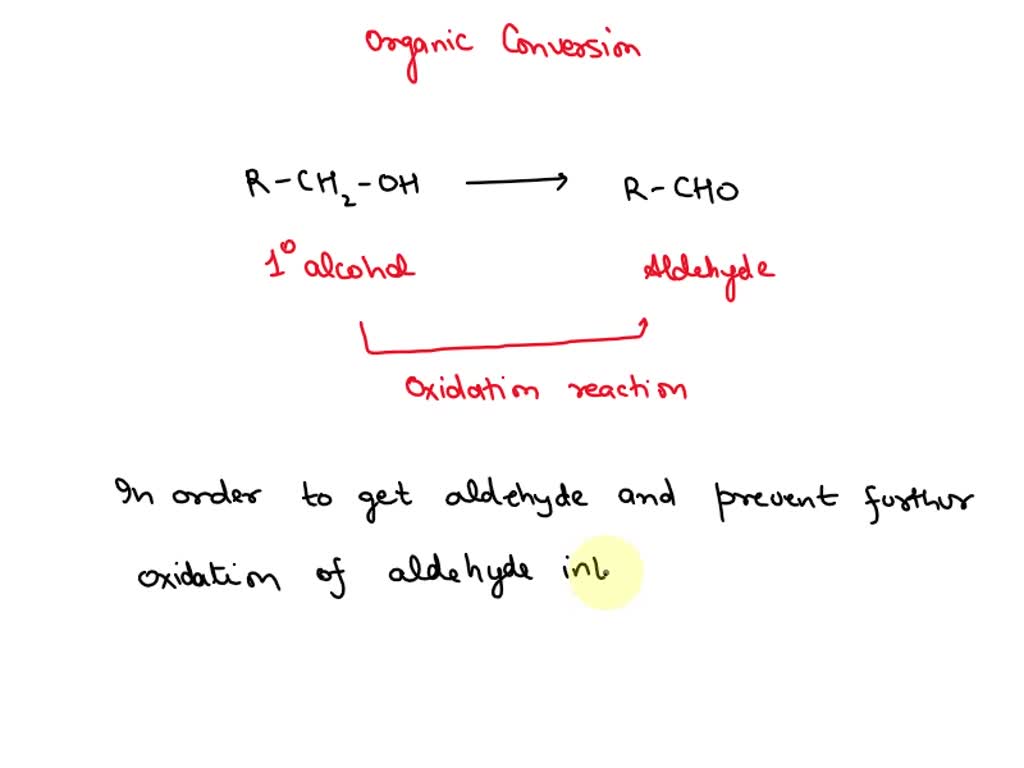 Organic Conversion
R-CH₂-OH ⟶ R-CHO
1° alcohol Aldehyde
Oxidation reaction
In order to get aldehyde and prevent further
oxidation of aldehyde